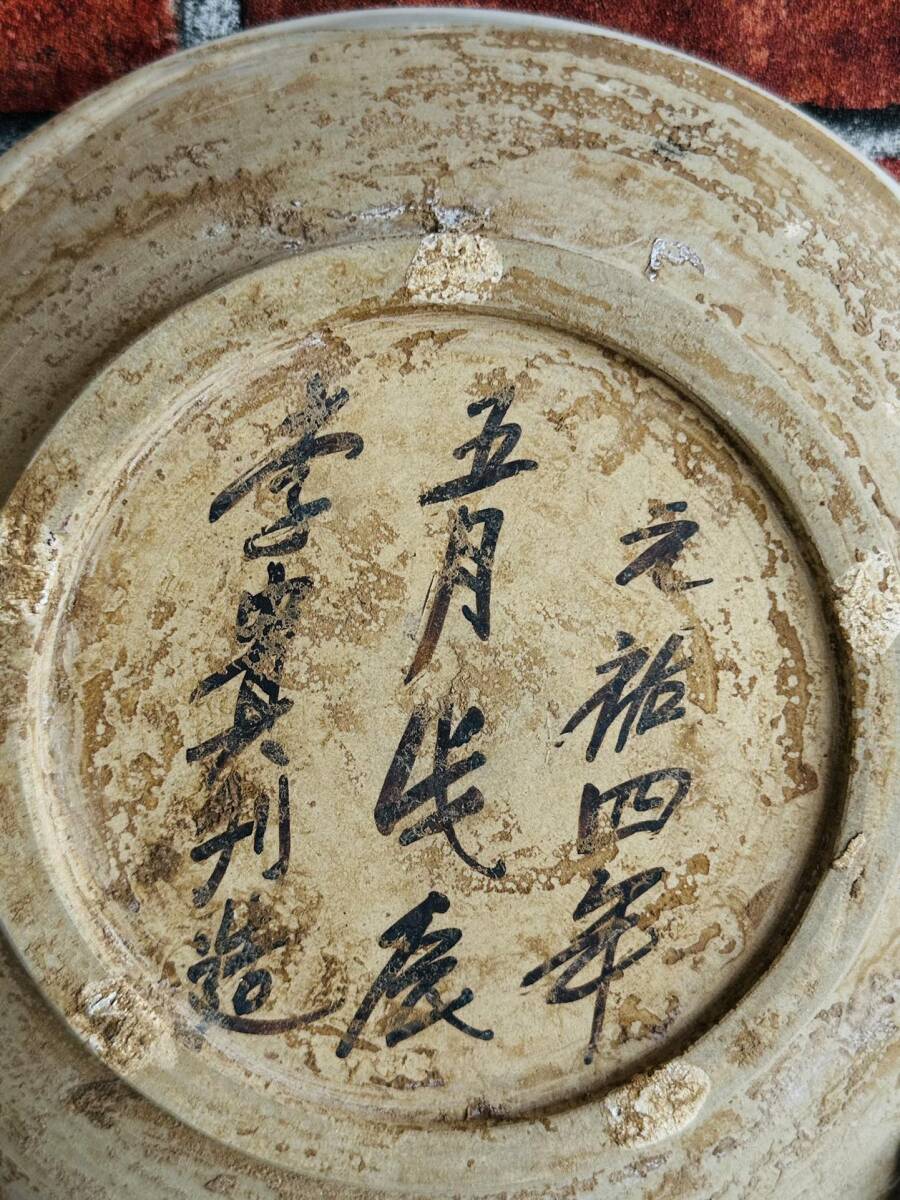 元祐四年
五月辰
李刊造